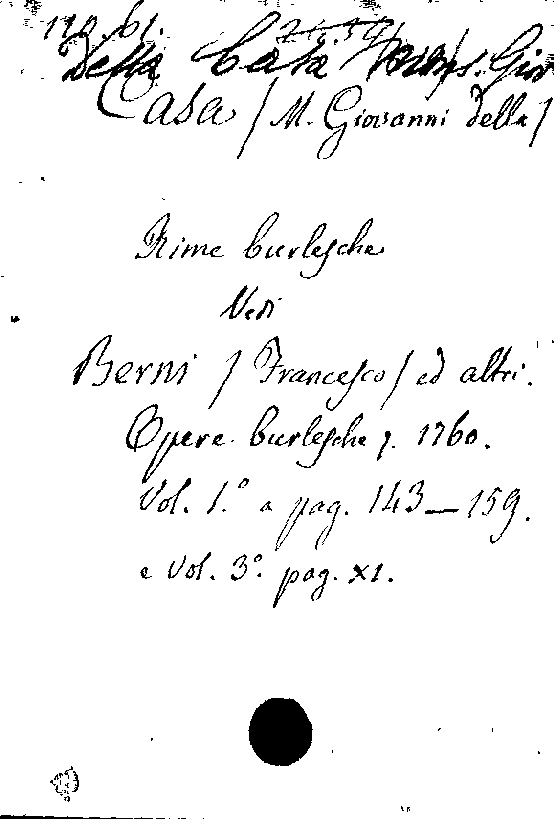 119.61.
Della Casa Mons. Giov
Casa / M. Giovanni della /
Rime burlesche
Vedi
Berni / Francesco / ed altri.
Opere burlesche 1760.
Vol. 1.º a pag. 143—159.
e Vol. 3º. pag. XI.